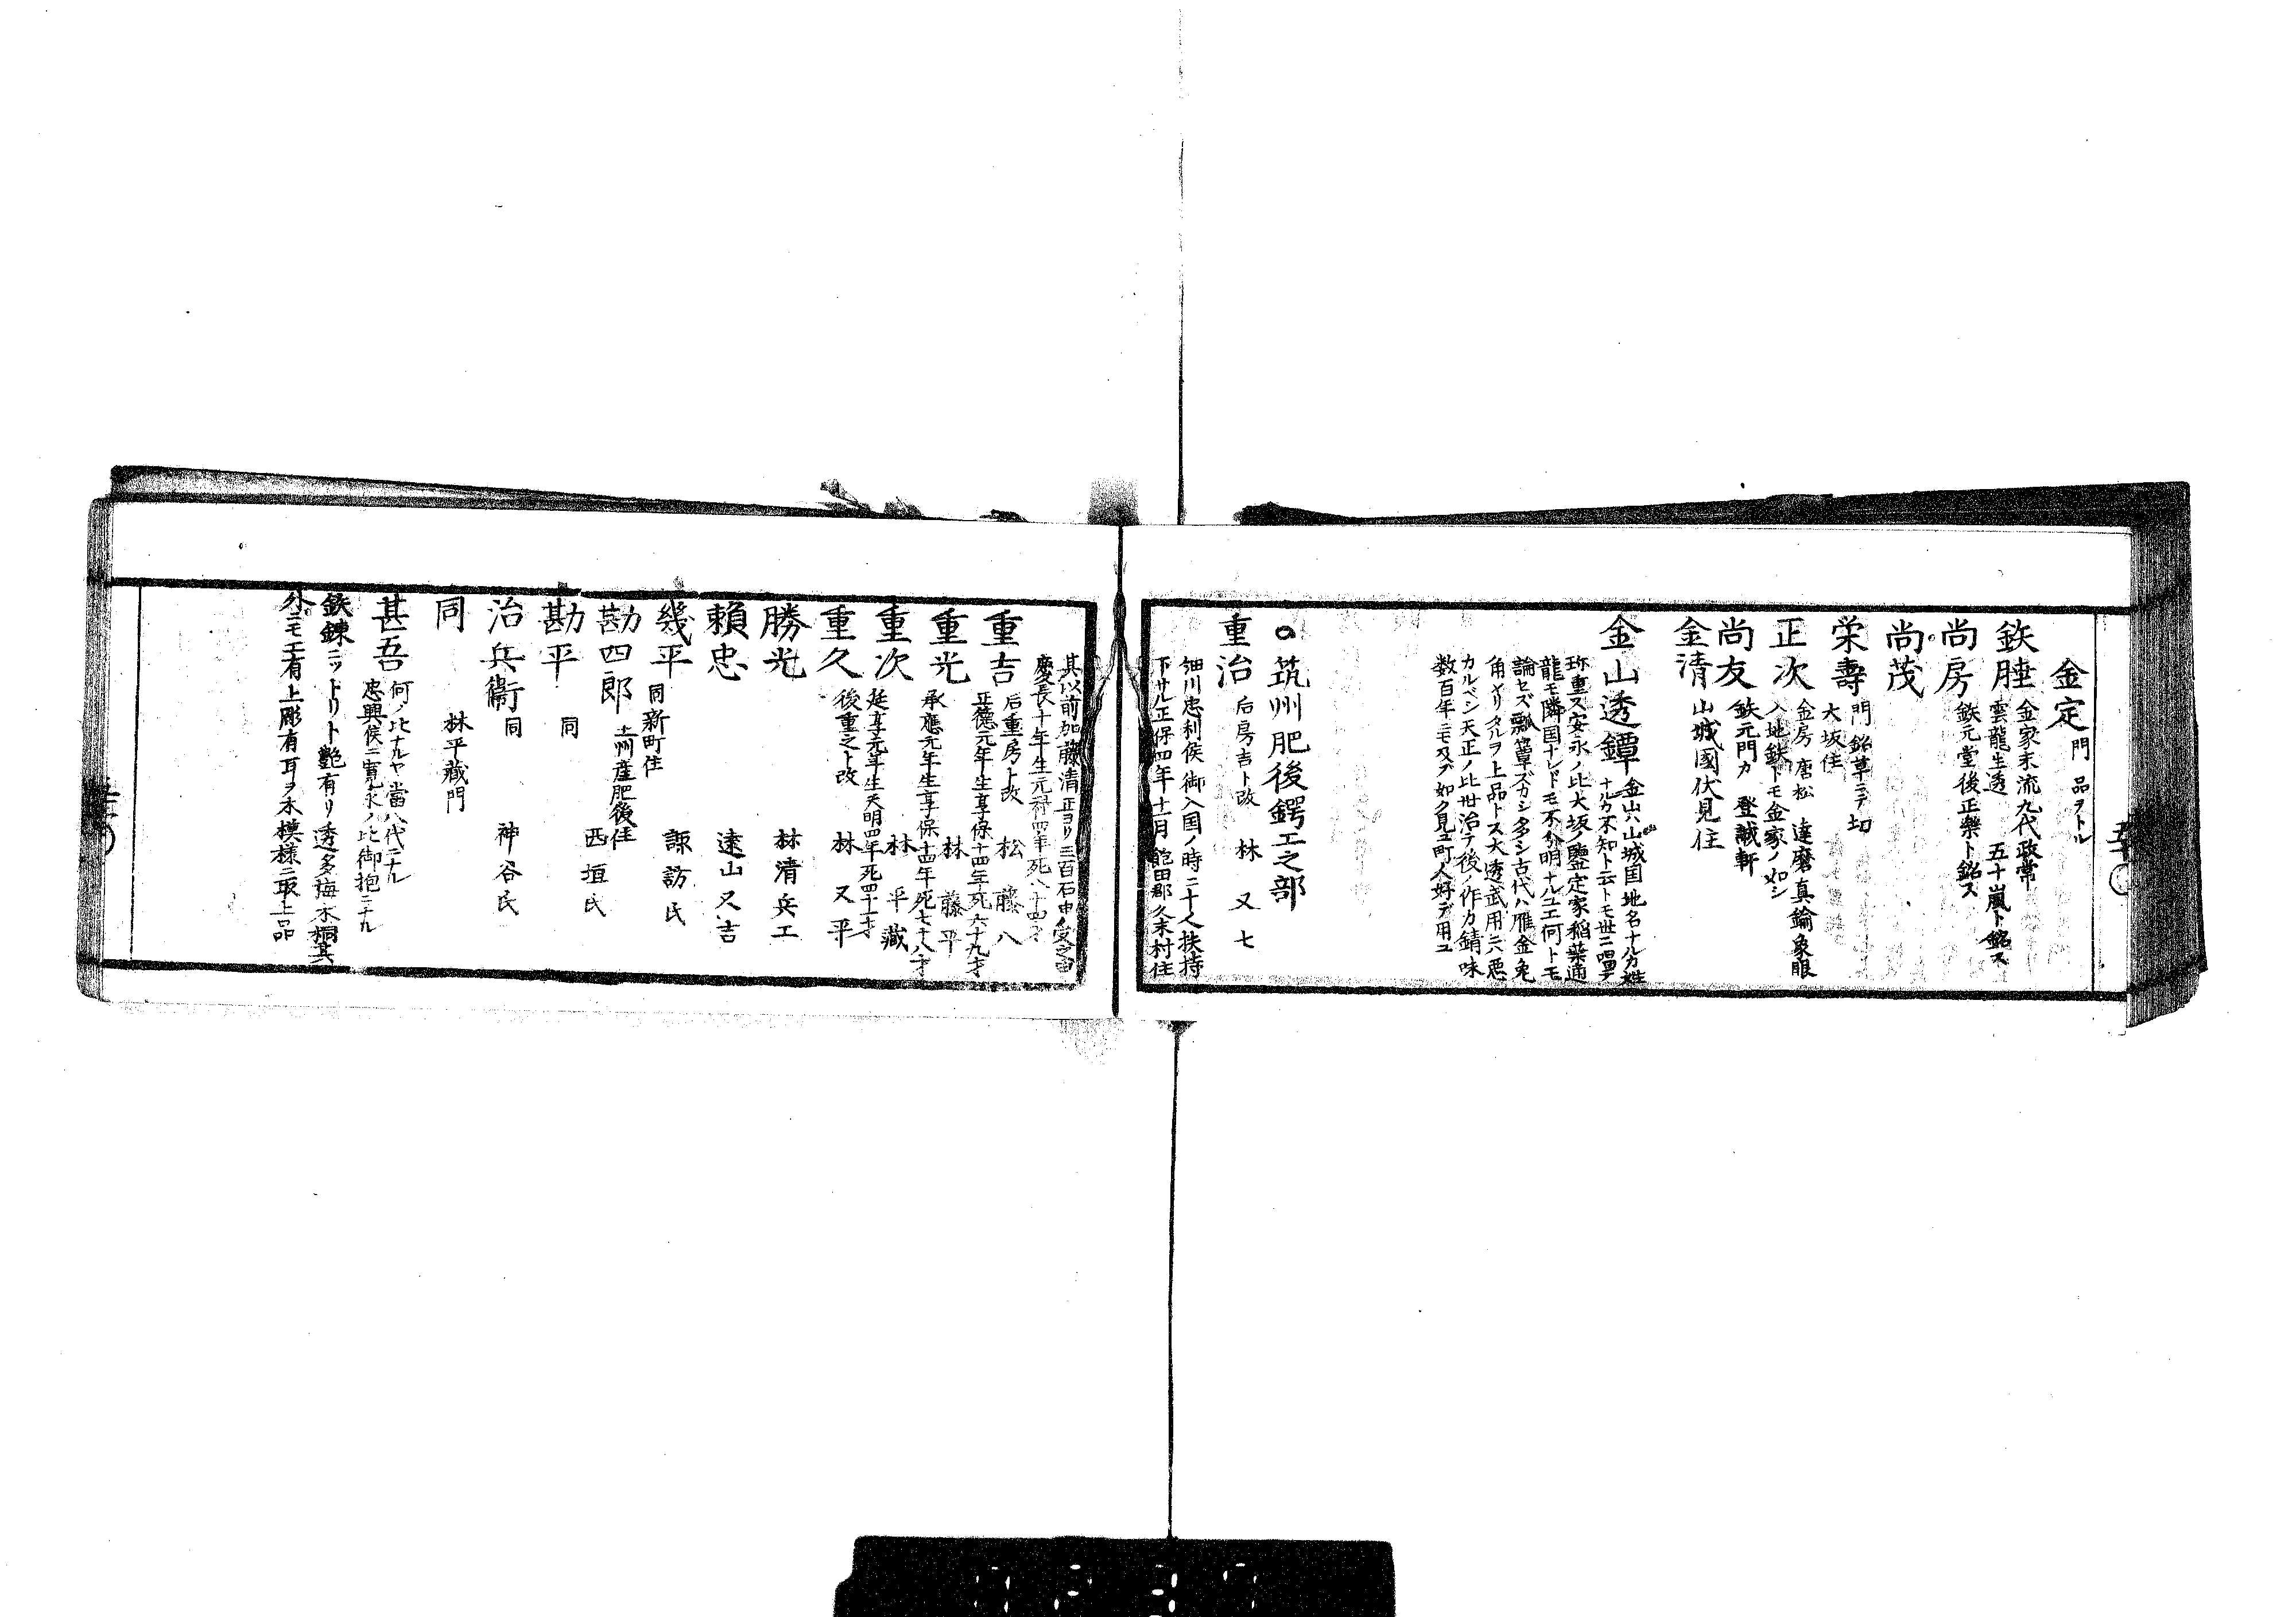 金定 門 品ヲトル
鉄腄 金家末流九代政常
雲龍生透 五十嵐ト銘ス
尚房 鉄元堂後正樂ト銘ス
尚茂
栄壽 門銘草ニテ切
大坂住
正次 金房唐松 達磨真鍮象眼
入地鉄トモ金家ノ如シ
尚友 鉄元門カ 登誠軒
金清 山城國伏見住
金山透鐔 金山ハ山城国地名ナルカ姓
ナルカ不知ト云トモ世ニ唱テ
珎重ス安永ノ比大坂ノ鑒定家稲葉通
龍モ隣国ナレドモ不分明ナルユエ何トモ
論セズ瓢簞ズカシ多シ古代ハ雁金兔
角ヤリタルヲ上品トス大透武用ニハ悪
カルベシ天正ノ比世治テ後ノ作カ錆味
数百年ニモ及ブ如ク見ユ町人好デ用ユ
○筑州肥後鍔工之部
重治 后房吉ト改 林又七
細川忠利侯御入国ノ時二十人扶持
下サル正保四年十一月飽田郡久末村住
其以前加藤清正ヨリ三百石中ノ受之由
慶長十年生元禄四年死八十四才
重吉 后重房ト改 松藤八
正德元年生享保十四年死六十九才
重光 林藤平
承應元年生享保十四年死七十八才
重次 林平藏
延享元年生天明四年死四十一才
重久 後重之ト改 林又平
勝光 林清兵エ
賴忠 遠山又吉
幾平 同新町住 諏訪氏
勘四郎 土州産肥後住
西垣氏
勘平 同
治兵衞 同 神谷氏
同 林平藏門
甚吾 何ノ比ナルヤ當八代ニナル
忠興侯ニ寛永ノ比御抱ニナル
鉄錬ニットリト艷有リ透多梅木桐其
外ニモ有上彫有耳ヲ木模様ニ取上品